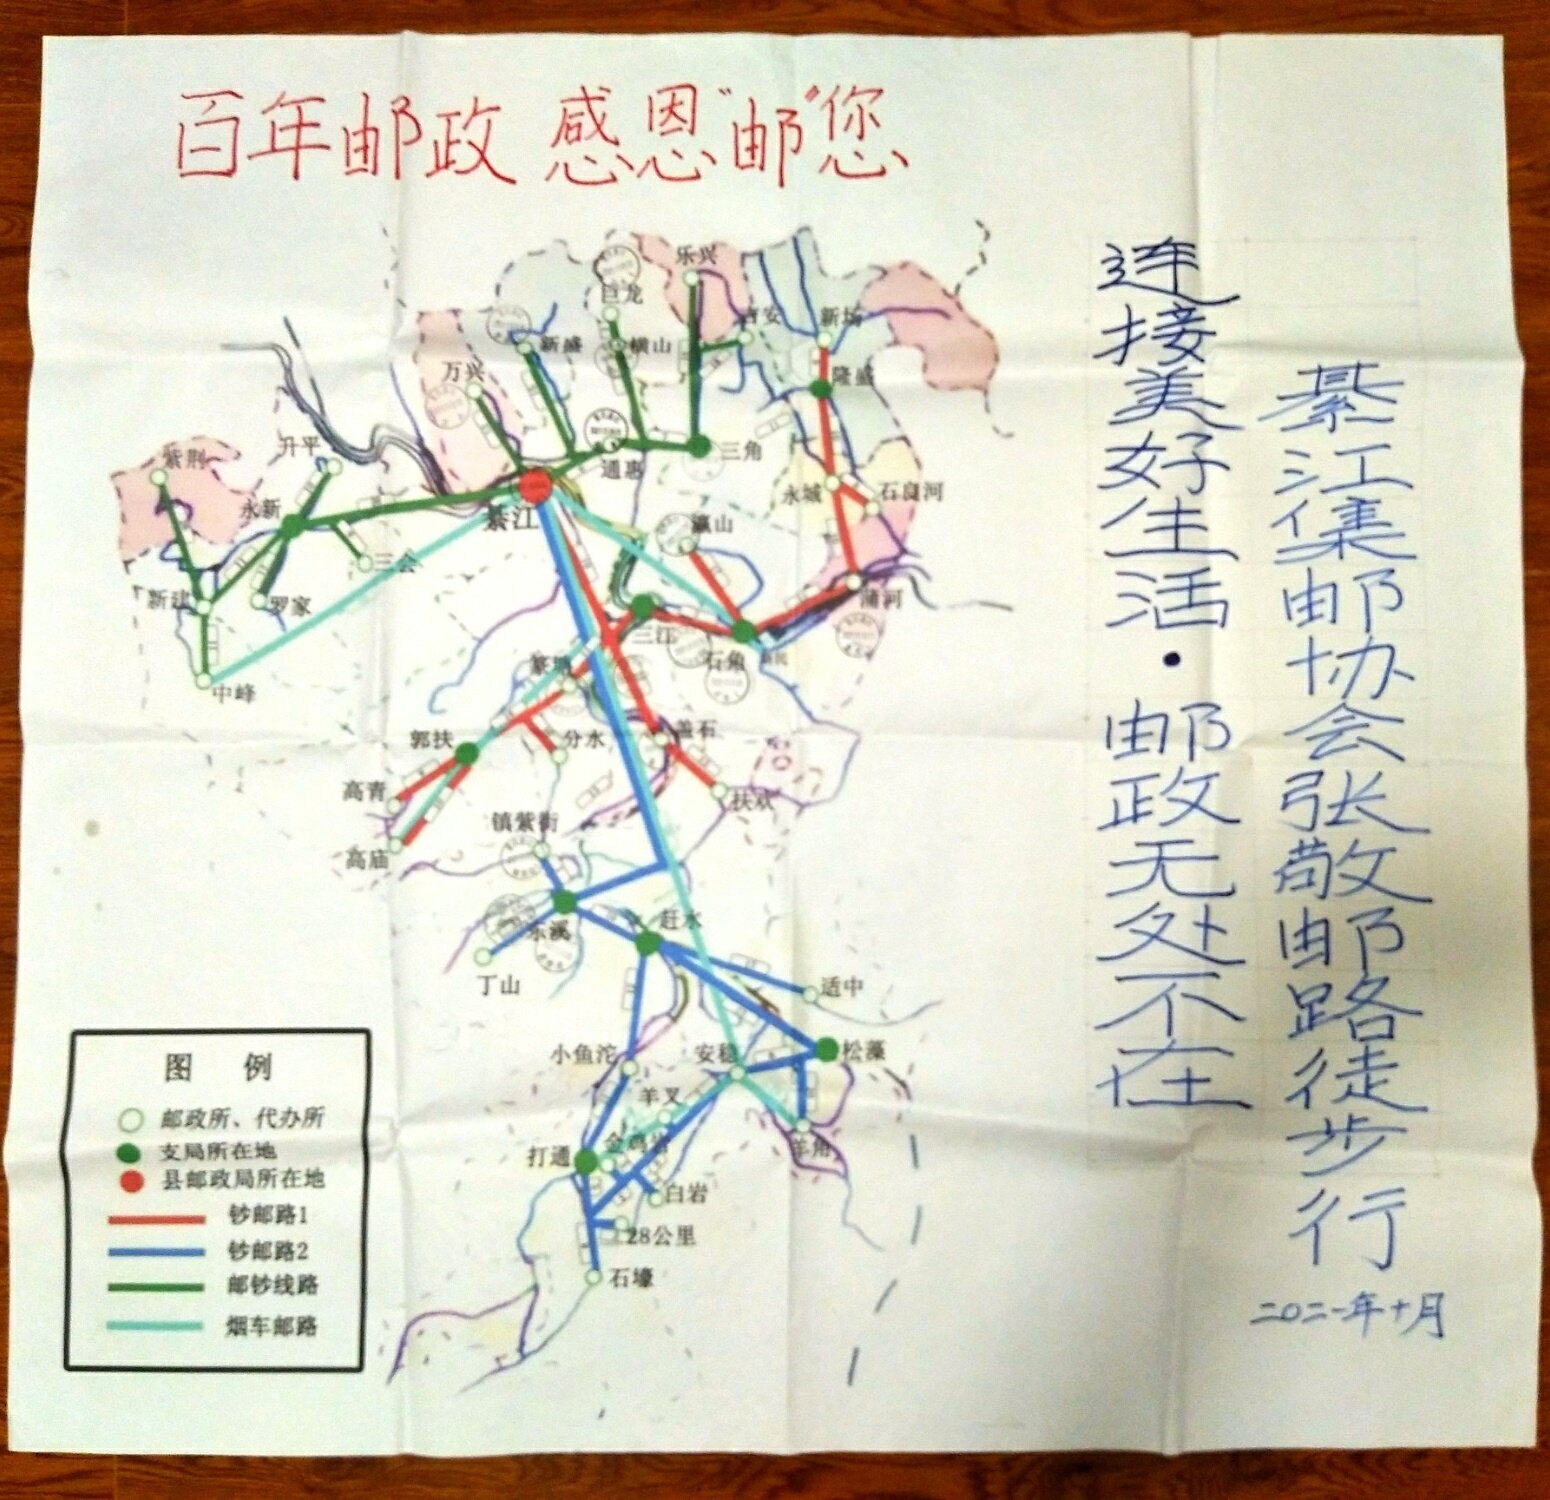 百年邮政 感恩"邮"您
连接美好生活·邮政无处不在
綦江集邮协会张敬邮路徒步行
二〇二一年十月
乐兴
巨龙
吉安
新场
新盛
横山
万兴
隆盛
升平
紫荆
通惠
三角
永城
石良河
永新
綦江
瀛山
三会
新建
罗家
蒲河
三江
石角
篆塘
中峰
郭扶
分水
盖石
高青
扶欢
镇紫街
高庙
东溪
赶水
丁山
适中
小鱼沱
安稳
松藻
羊叉
金鸡岩
羊角
打通
白岩
28公里
石壕
图 例
邮政所、代办所
支局所在地
县邮政局所在地
钞邮路1
钞邮路2
邮钞线路
烟车邮路